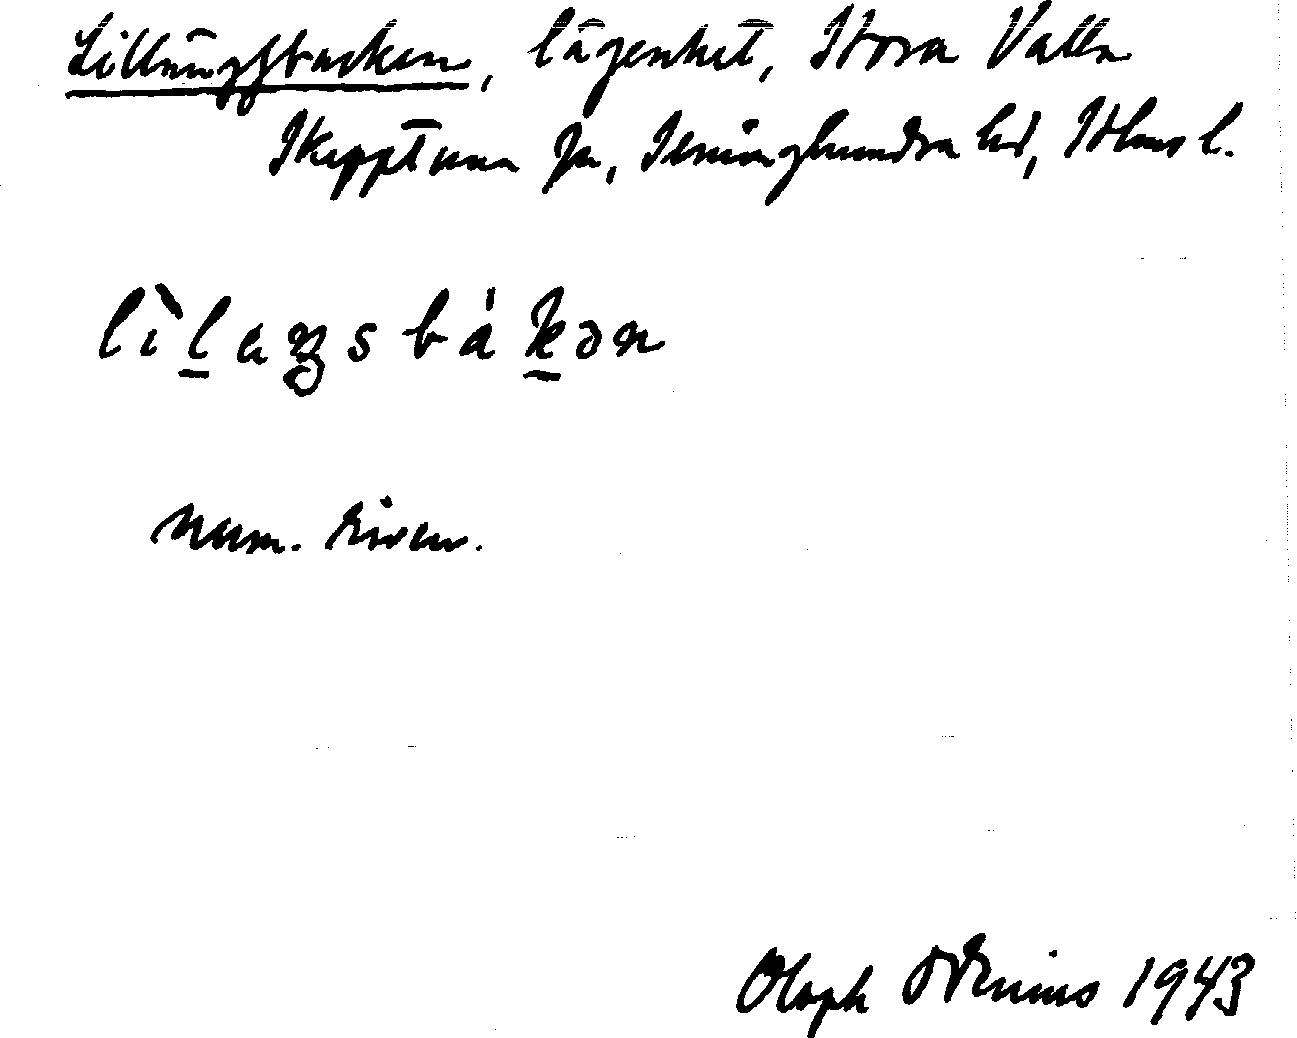 Lillängsbacken, lägenhet, Stora Valla
Skepptuna sn, Seminghundra hd, Sthms l.
lìl̠aŋsbák̠ən
num. riven.
Oloph Odenius 1943